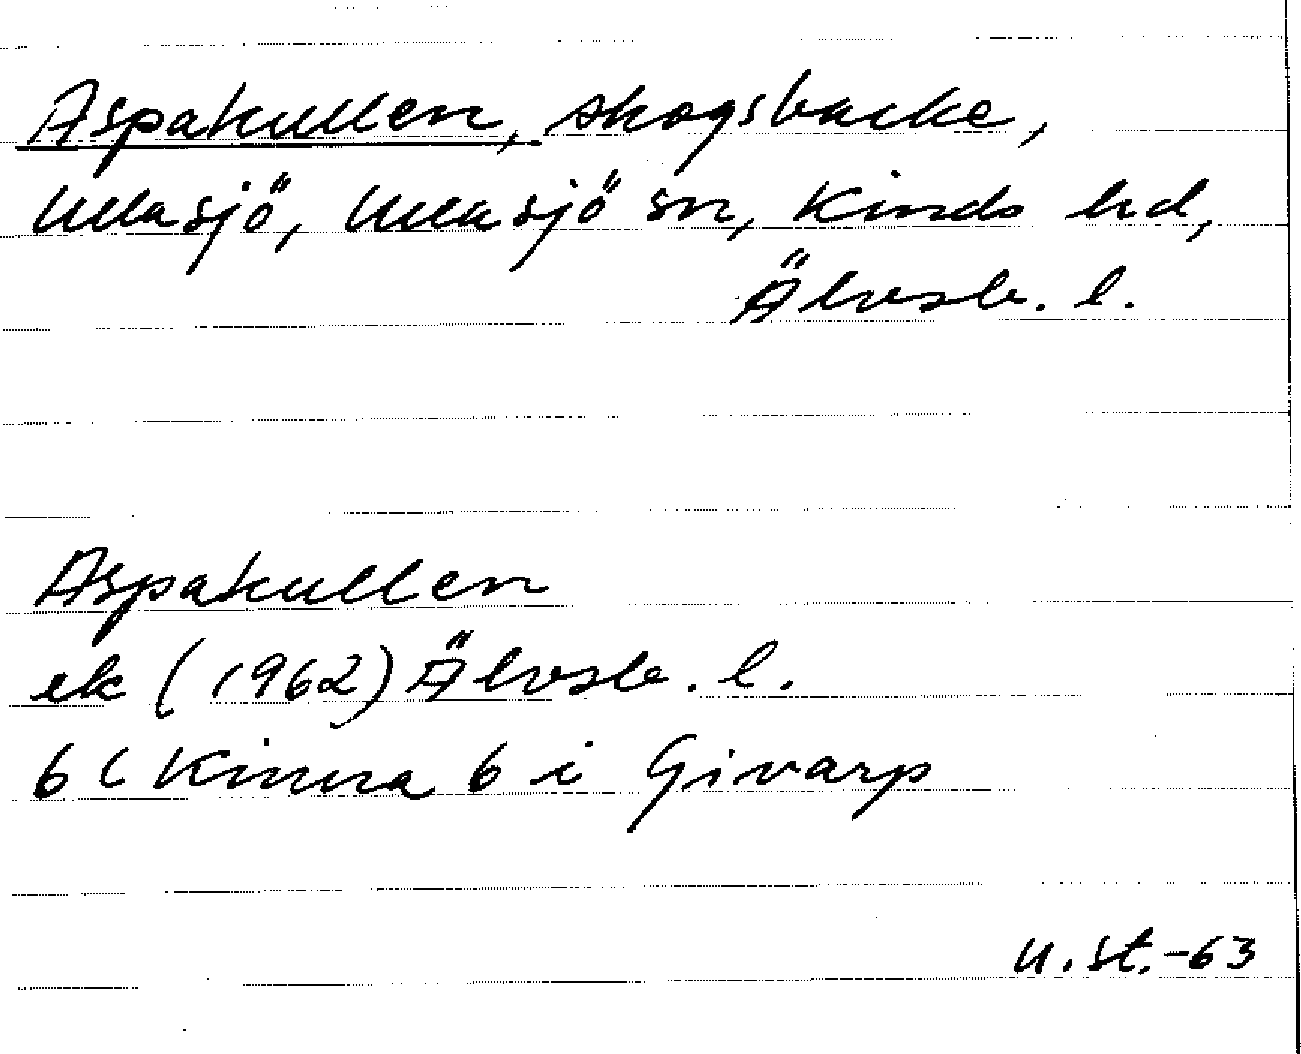 Aspakullen, skogsbacke,
Ullasjö, Ullasjö sn, Kinds hd,
Älvsb. l.
Aspakullen
ek (1962) Älvsb. l.
6 C Kinna 6 i Givarp
U. St. -63